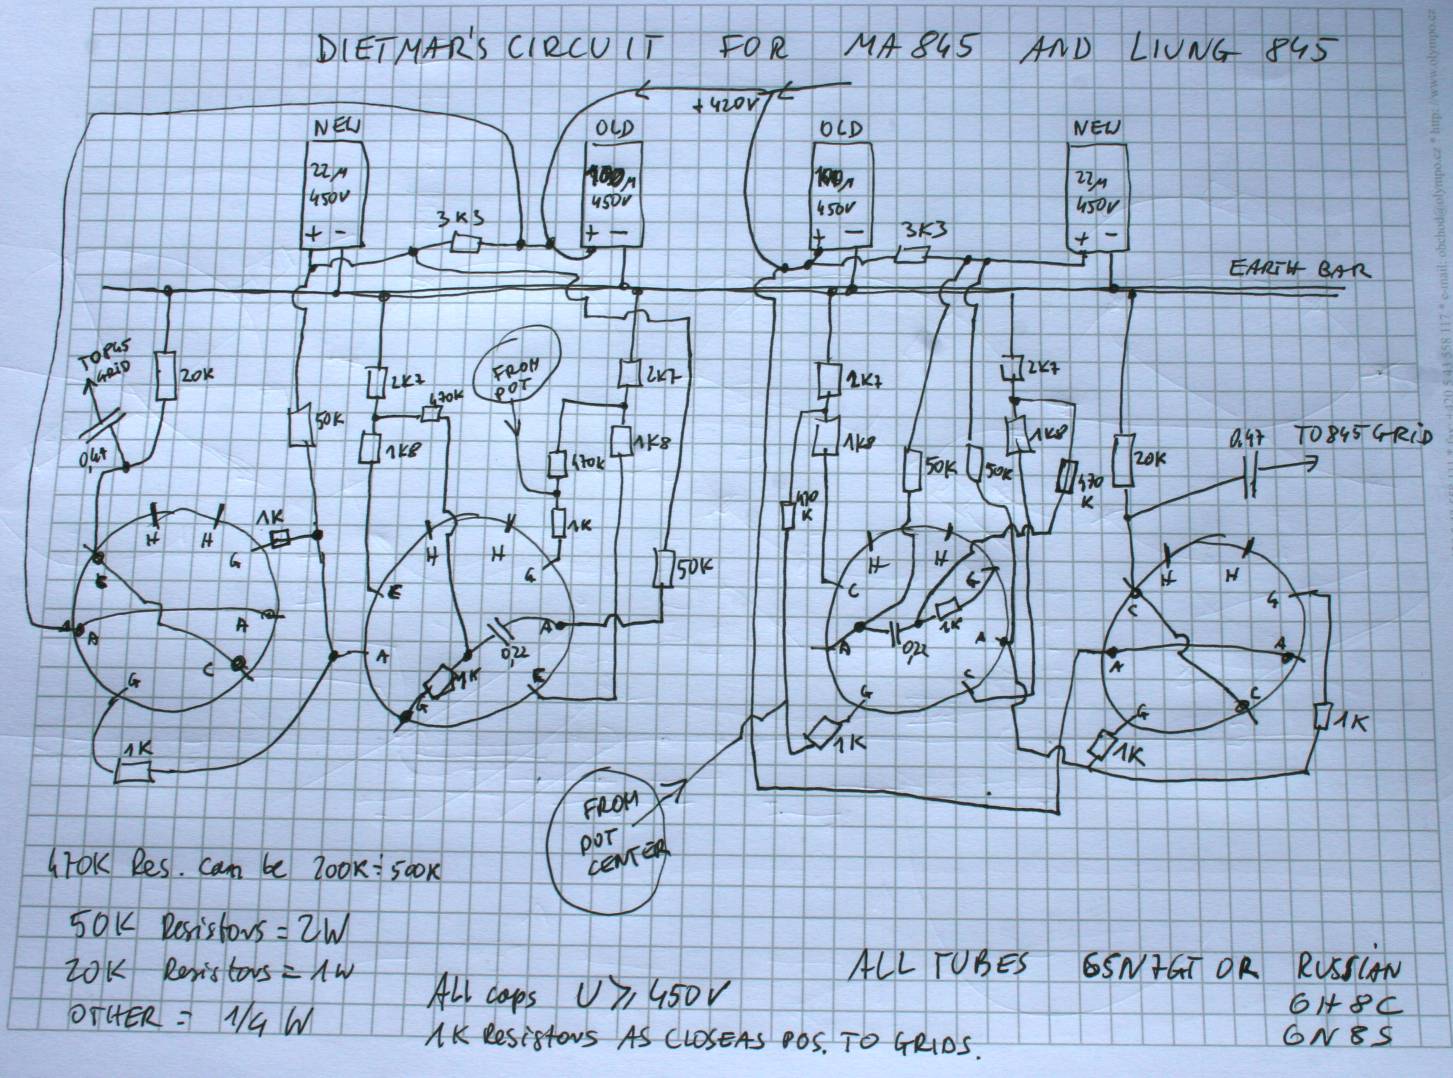 DIETMAR'S CIRCUIT FOR MA845 AND LIUNG 845
+420V
NEW
22µ
450V
+ -
OLD
450V
+ -
OLD
450V
+ -
NEW
22µ
450V
+ -
3K3
3K3
EARTH BAR
TO 845
GRID
20K
0,47
50K
2K7
470K
1K8
FROM
POT
2K7
470K
1K8
1K
50K
2K7
1K8
470
K
50K
50K
2K7
1K8
470
K
20K
0,47
TO 845 GRID
H
H
G
1K
A
A
C
G
1K
H
H
G
A
A
0,22
1K
G
H
H
C
G
1K
A
0,22
A
C
G
1K
H
H
C
G
A
A
C
G
1K
1K
FROM
POT
CENTER
470K Res. can be 200K÷500K
50K Resistors = 2W
20K Resistors = 1W
OTHER = 1/4 W
ALL caps U ⩾ 450V
1K Resistors AS CLOSEAS POS. TO GRIDS.
ALL TUBES 6SN7GT OR RUSSIAN
6H8C
6N8S